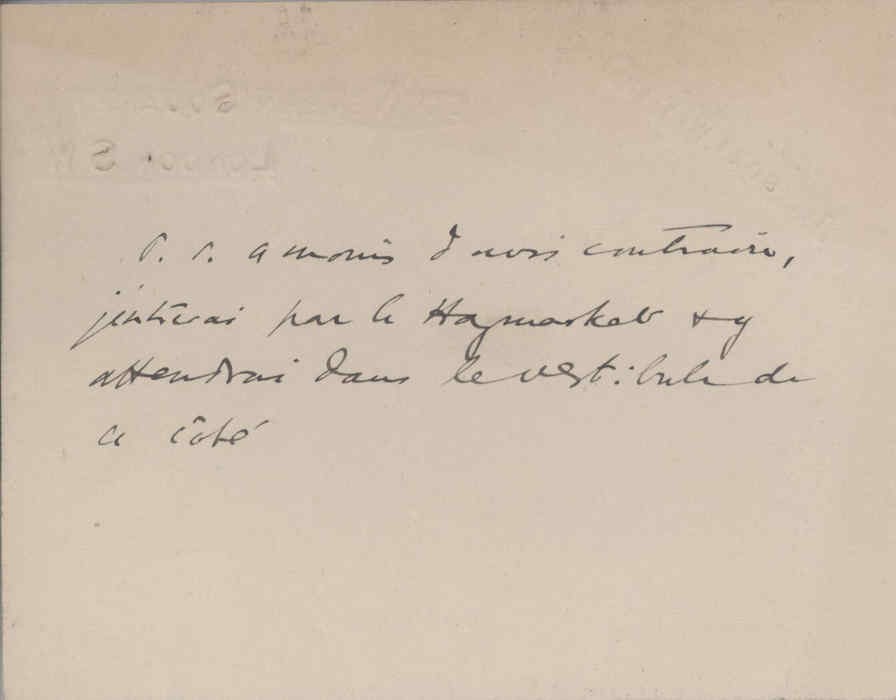 P. S. A moins d'avis contraire,
j'entrerai par le Haymarket & y
attendrai dans le vestibule de
ce côté